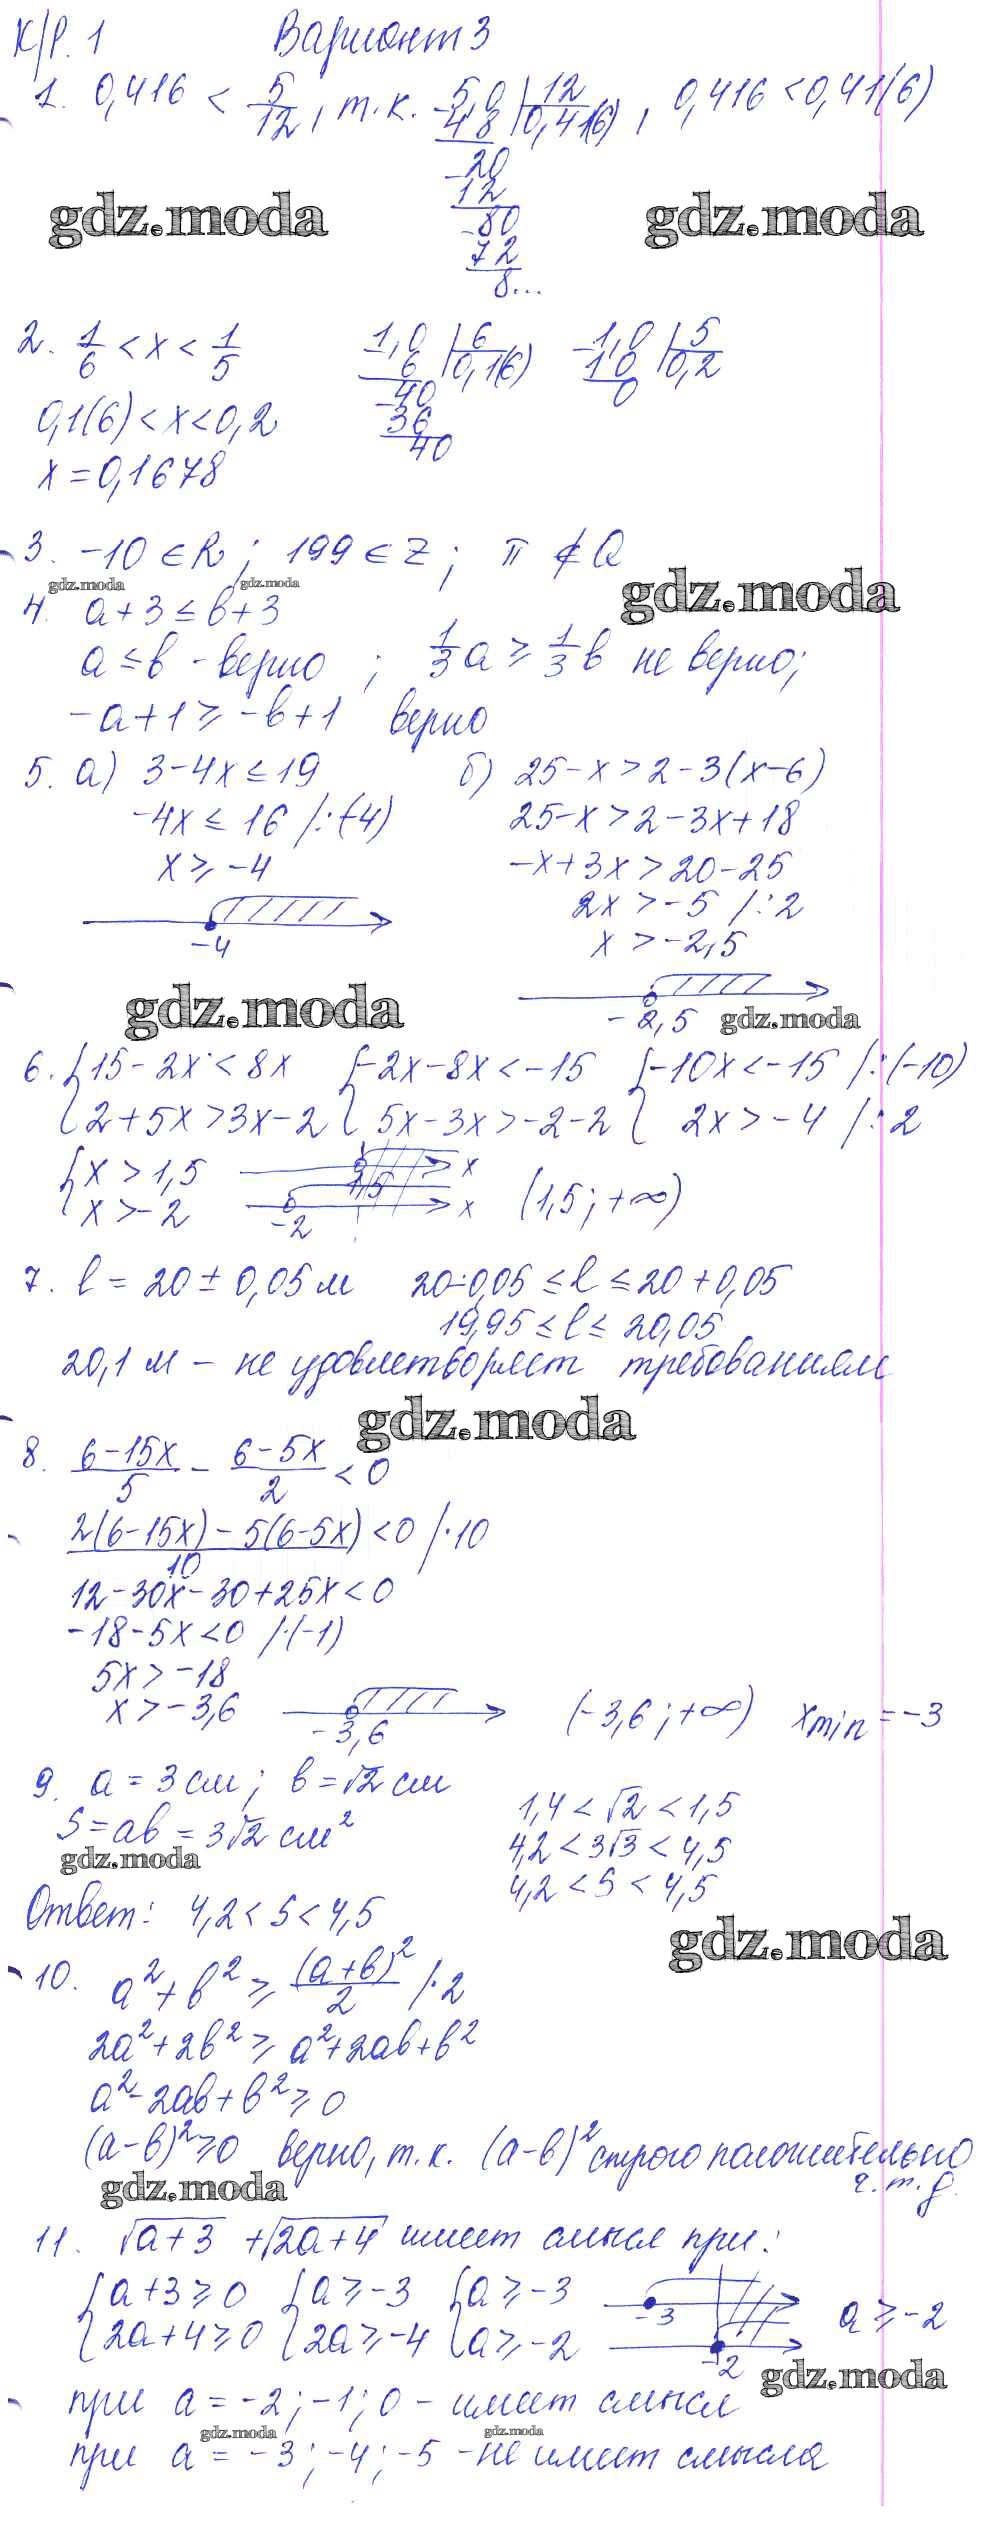 К/Р. 1 Вариант 3
1. 0,416 < 5/12, т.к. 5,0 | 12 0,41(6), 0,416 < 0,41(6)
48
20
12
80
72
8...
gdz.moda gdz.moda
2. 1/6 < x < 1/5 1,0 | 6 0,1(6) 1,0 | 5 0,2
6 10
40 0
0,1(6) < x < 0,2 36
40
x = 0,1678
3. -10 ∈ R; 199 ∈ Z; π ∉ Q
gdz.moda gdz.moda gdz.moda
4. a + 3 ≤ b + 3
a ≤ b - верно; 1/3 a ≥ 1/3 b не верно;
-a + 1 ≥ -b + 1 верно
5. а) 3 - 4x ≤ 19 б) 25 - x > 2 - 3(x - 6)
-4x ≤ 16 /:(-4) 25 - x > 2 - 3x + 18
x ≥ -4 -x + 3x > 20 - 25
2x > -5 /:2
-4 x > -2,5
gdz.moda -2,5 gdz.moda
6. { 15 - 2x < 8x { -2x - 8x < -15 { -10x < -15 /:(-10)
{ 2 + 5x > 3x - 2 { 5x - 3x > -2 - 2 { 2x > -4 /:2
{ x > 1,5 1,5 x
{ x > -2 -2 x (1,5; +∞)
7. l = 20 ± 0,05 м 20-0,05 ≤ l ≤ 20 + 0,05
19,95 ≤ l ≤ 20,05
20,1 м - не удовлетворяет требованиям
gdz.moda
8. (6 - 15x)/5 - (6 - 5x)/2 < 0
(2(6 - 15x) - 5(6 - 5x))/10 < 0 /·10
12 - 30x - 30 + 25x < 0
-18 - 5x < 0 /·(-1)
5x > -18
x > -3,6 -3,6 (-3,6; +∞) xmin = -3
9. a = 3 см; b = √2 см 1,4 < √2 < 1,5
S = ab = 3√2 см² 4,2 < 3√3 < 4,5
gdz.moda 4,2 < S < 4,5
Ответ: 4,2 < S < 4,5
gdz.moda
10. a² + b² ≥ (a + b)²/2 /·2
2a² + 2b² ≥ a² + 2ab + b²
a² - 2ab + b² ≥ 0
(a - b)² ≥ 0 верно, т.к. (a - b)² строго положительно
gdz.moda ч.т.д.
11. √a + 3 + √2a + 4 имеет смысл при:
{ a + 3 ≥ 0 { a ≥ -3 { a ≥ -3 -3 a ≥ -2
{ 2a + 4 ≥ 0 { 2a ≥ -4 { a ≥ -2 -2
gdz.moda
при a = -2; -1; 0 - имеет смысл
gdz.moda gdz.moda
при a = -3; -4; -5 - не имеет смысла